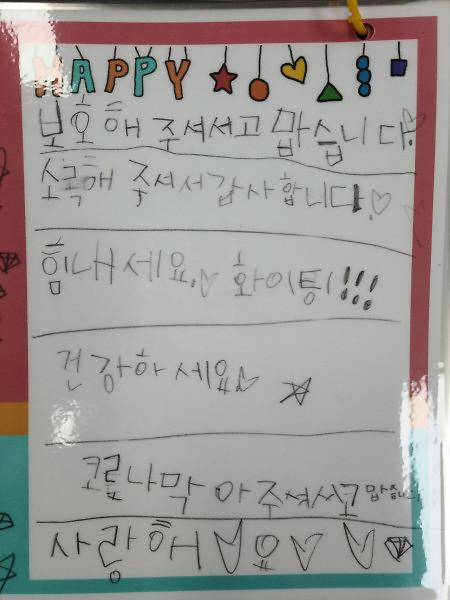 HAPPY
보호해 주셔서고 맙습니다.
소독해 주셔서감사합니다.♡
힘내세요.♡ 화이팅!!!
건강하세요♡ ☆
코로나막아주셔서고맙습니다
사랑해♡요♡♡